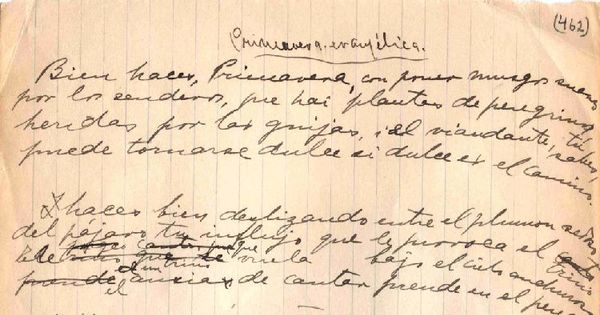 (462)
Primavera evangélica.
Bien haces, Primavera, con poner musgos suaves
por los senderos, que hai plantas de peregrino
heridas por las guijas, i el viandante, tú sabes,
puede tornarse dulce si dulce es el camino.
I haces bien deslizando entre el plumon sedoso
del pájaro tu influjo que le provoca el trino
que vuela bajo el cielo anchuroso
el ansia de cantar prende en el